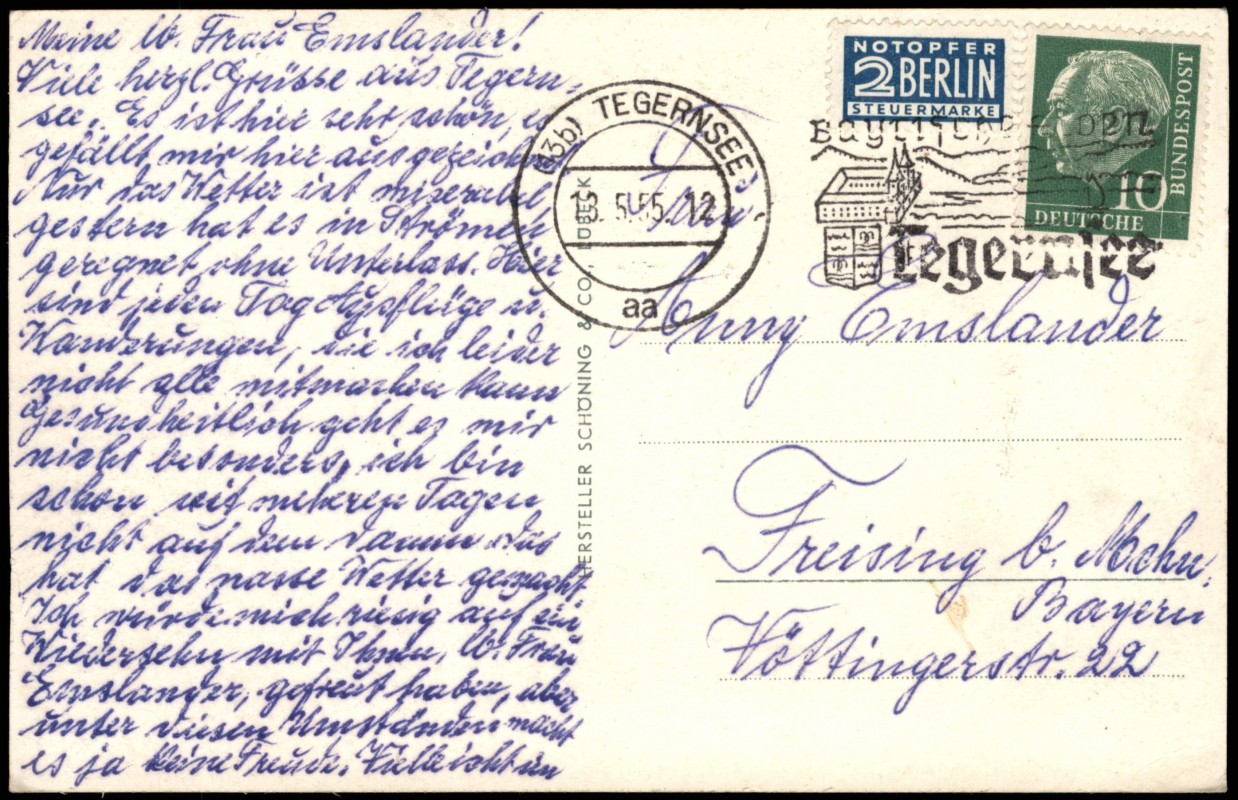 Meine lb. Frau Emslander!
Viele herzl. Grüsse aus Tegern-
see. Es ist hier sehr schön, es
gefällt mir hier ausgezeich
Nur das Wetter ist miserabel,
gestern hat es in Strömen
geregnet, ohne Unterlass. Hier
sind jeden Tag Ausflüge u.
Wanderungen, die ich leider
nicht alle mitmachen kann
Gesundheitlich geht es mir
nicht besonders, ich bin
schon seit mehreren Tagen
nicht auf dem Damm das
hat das nasse Wetter gemacht
Ich würde mich riesig auf ein
Wiedersehn mit Ihnen, lb. Frau
Emslander, gefreut haben, aber
unter diesen Umständen macht
es ja keine Freude. Vielleicht im
HERSTELLER SCHÖNING & CO., LÜBECK
(13b) TEGERNSEE
5.55. 12
aa
NOTOPFER
2 BERLIN
STEUERMARKE
DEUTSCHE
BUNDESPOST
10
Tegernsee
Frau
Anny Emslander
Freising b. Mchn.
Bayern
Vöttingerstr. 22